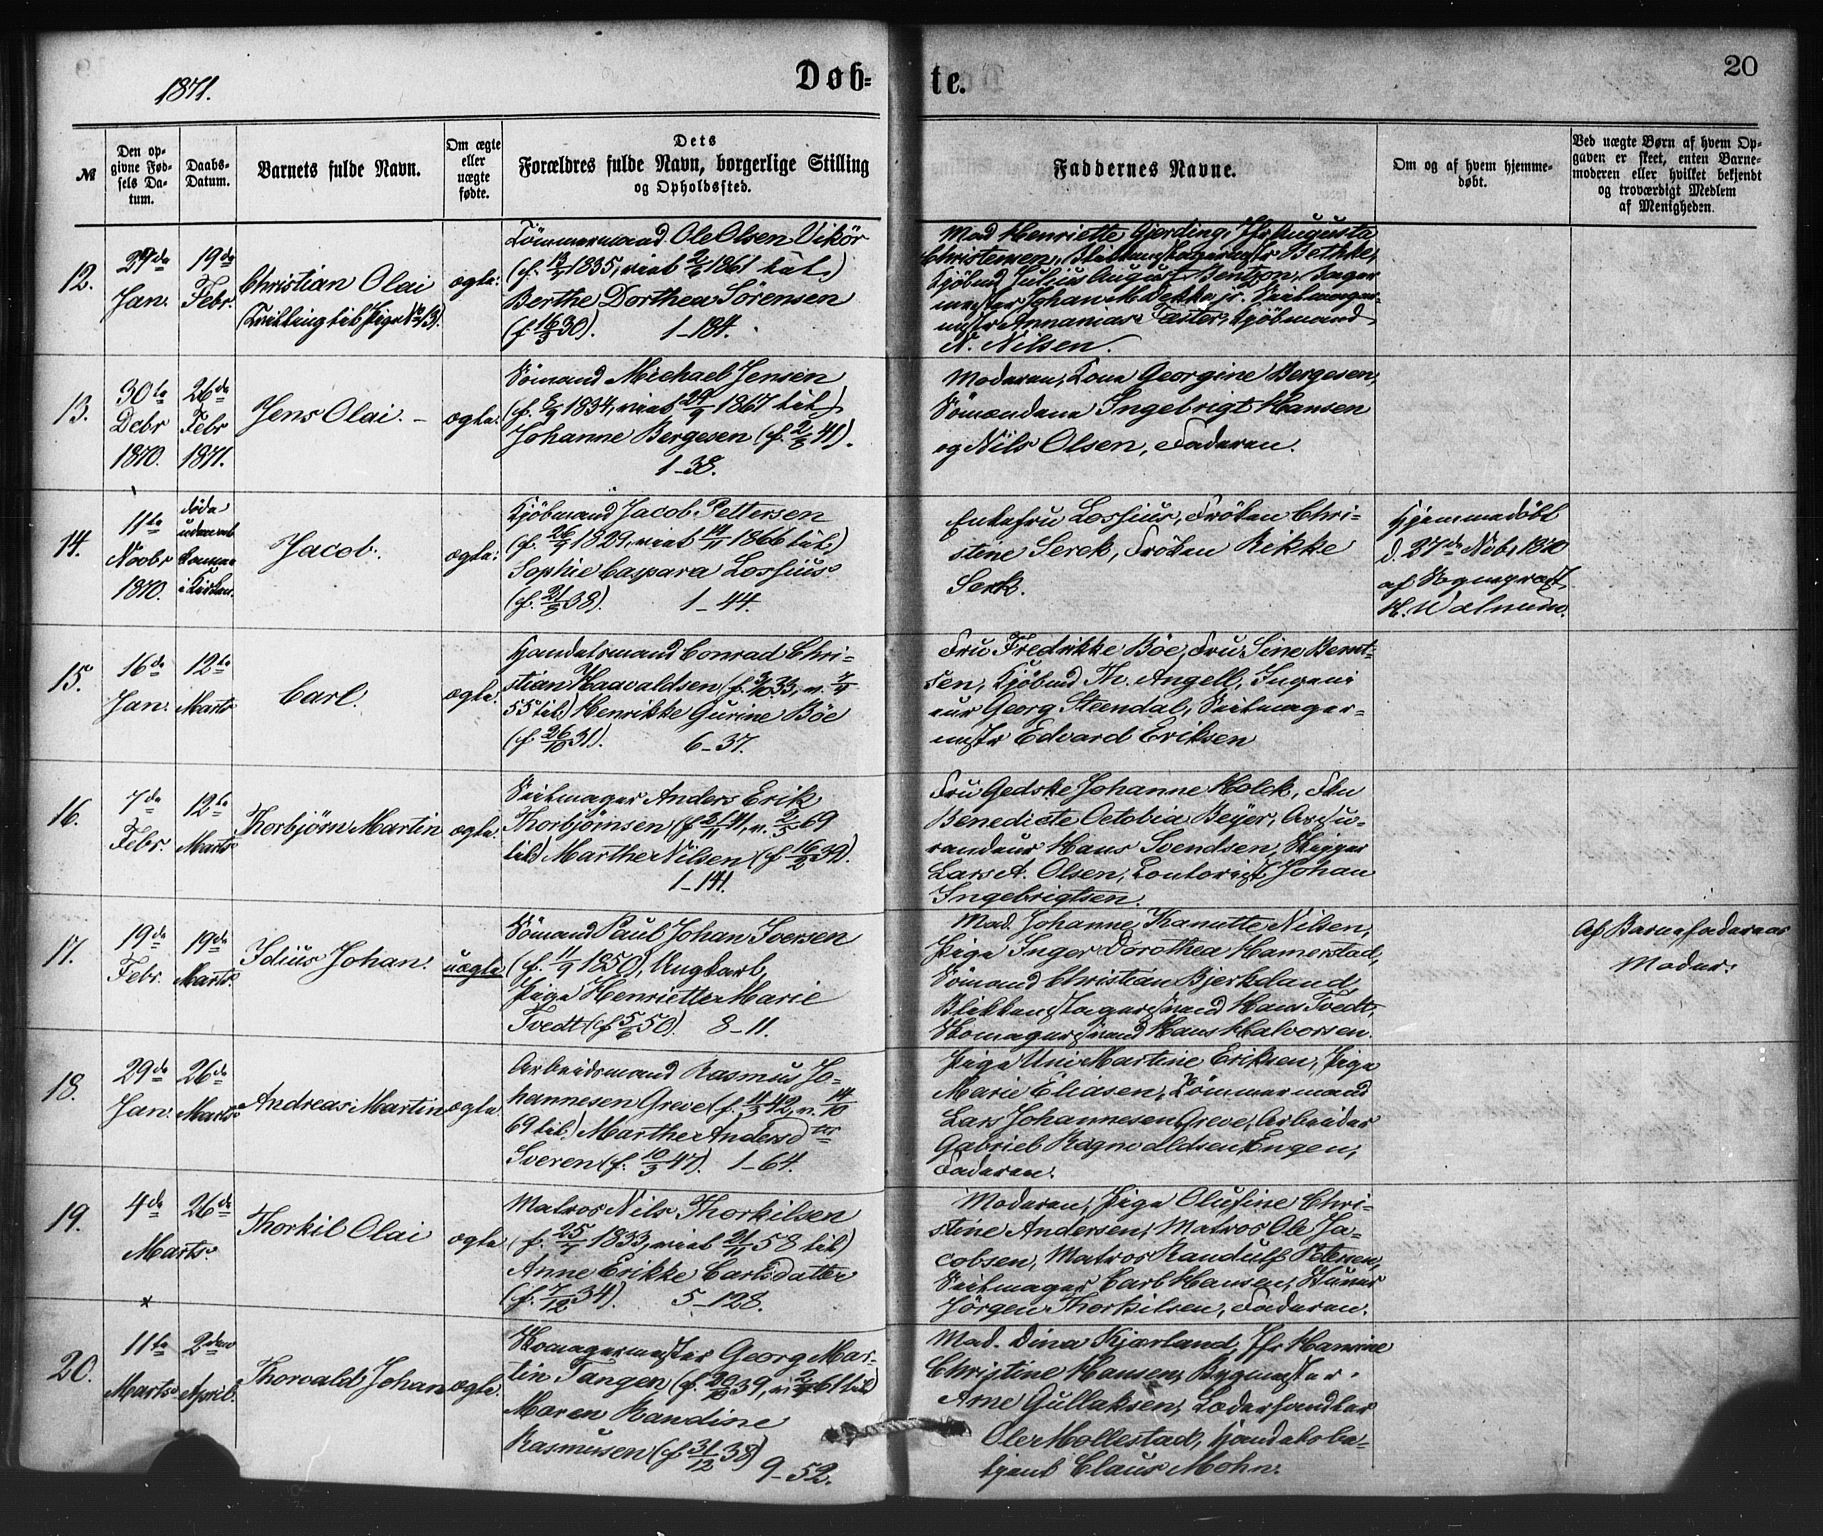 1871.
Døb=
te.
20
№
Den op-
givne Fød-
sels Da-
tum.
Daabs-
Datum.
Barnets fulde Navn.
Om ægte
eller
uægte
fødte.
Dets
Forældres fulde Navn, borgerlige Stilling
og Opholdssted.
Faddernes Navne.
Om og af hvem hjemme-
døbt.
Ved uægte Børn af hvem Op-
gaven er skeet, enten Barne-
moderen eller hvilket bekjendt
og troværdigt Medlem
af Menigheden.
12.
29de
Jan.
19de
Febr.
Christian Olai
(Tvilling til Pige No 13).
ægte:
Tømmermand Ole Olsen Vikör
(f. 13/2 1835, viet 2/6 1861 til)
Berthe Dorthea Sörensen
(f. 16/3 30). 1-184.
Mad Henriette Gjerding, Jfr Augusta
Christensen, Blikkenslagermstr Bethke,
Kjöbmd Julius August Bentzon, Bager
mester Johan M. Dekke jr. Seilmager-
mstr Annanias Tæster, Kjöbmand
N. Nilsen.
13.
30te
Decbr
1870.
26de
Febr
1871.
Jens Olai. -
ægte.
Sömand Michael Jensen
(f. 8/9 1834, viet 29/9 1867 til)
Johanne Bergesen (f. 2/3 41).
1-38.
Moderen, Kone Georgine Bergesen,
Sömændene Ingebrigt Hansen
og Nils Olsen, Faderen.
14.
11te
Novbr
1870.
Döde
udenat
komme
i Kirken.
Jacob.
ægte:
Kjöbmand Jacob Pettersen
(f. 26/9 1829, viet 14/11 1866 til)
Sophie Caspara Lossius
(f. 21/3 38). 1-44.
Enkefru Lossius, Fröken Chri-
stine Serck, Fröken Rikke
Serck.
Hjemmedöbt
d. 27de Nvbr 1870
af Sogneprest
H. Walnum.
15.
16de
Jan.
12te
Marts
Carl.
ægte.
Handelsmand Conrad Chri-
stian Haavaldsen (f. 3/10 33, v. 7/4
55 til) Henrikke Gurine Böe
(f. 26/10 31). 6-37.
Fru Fredrikke Böe, Fru Sine Bernt-
sen, Kjöbmd Th. Angell, Ingeni
eur Georg Steendal, Seilmager-
mstr Edvard Eriksen
16.
7de
Febr.
12te
Marts
Thorbjörn Martin
ægte.
Seilmager Anders Erik
Thorbjörnsen (f 21/11 41, v. 2/5 69
til) Marthe Nilsen (f 16/2 39).
1-141.
Fru Gedske Johanne Holck, Frk
Benedicte Octobia Beyer, Assu-
randeur Hans Svendsen, Rigger
Lars A. Olsen, Contorist Johan
Ingebrigtsen.
17.
19de
Febr.
19de
Marts
Idius Johan.
uægte
Sömand Paul Johan Iversen
(f. 11/9 1850), Ungkarl,
Pige Henriette Marie
Tvedt (f 5/6 50). 8-11.
Mad. Johanne Kanutte Nilsen,
Pige Inger Dorothea Hamerstad,
Sömand Christian Bjerkeland,
Blikkenslagersvend Hans Tvedt,
Skomagersvend Hans Halvorsen.
Af Barnefaderens
Moder.
18.
29de
Jan.
26de
Marts
Andreas Martin
ægte.
Arbeidsmand Rasmus Jo-
hannesen Greve (f. 11/3 42, v. 14/10
69 til) Marthe Andersdtr
Sveren (f. 10/3 47). 1-64.
Pige Uni Martine Eriksen, Pige
Marie Eliasen, Tömmermand
Lars Johannesen Greve, Arbeider
Gabriel Ragnvaldsen Engen,
Faderen.
19.
4de
Marts.
26de
Thorkil Olai
ægte
Matros Nils Thorkilsen
(f. 25/7 1833, viet 21/11 58 til)
Anne Erikke Carlsdatter
(f. 7/12 34). 5-128.
Moderen, Pige Olufine Chri-
stine Andersen, Matros Ole Ja-
cobsen, Matros Randulf Petersen,
Seilmager Carl Hansen, Stuer
Jörgen Thorkilsen, Faderen.
20.
11te
Marts
2den
April.
Thorvald Johan
ægte.
Skomagermester Georg Mar-
tin Tangen (f. 20/2 39, v. 2/4 61 til)
Maren Randine
Rasmusen (f 31/12 38)
9-52.
Mad. Dina Kjærland, Jfr Hansine
Christine Hansen, Bygmester
Arne Gullaksen, Læderhandler
Ole Mollestad, Handelsbe-
tjent Claus Mohn.